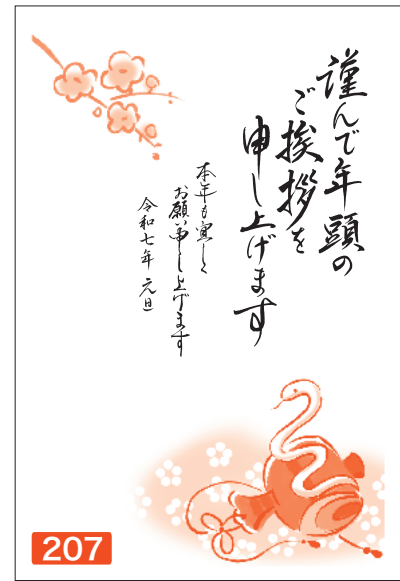 謹んで年頭の
ご挨拶を
申し上げます
本年も宜しく
お願い申し上げます
令和七年 元旦
207